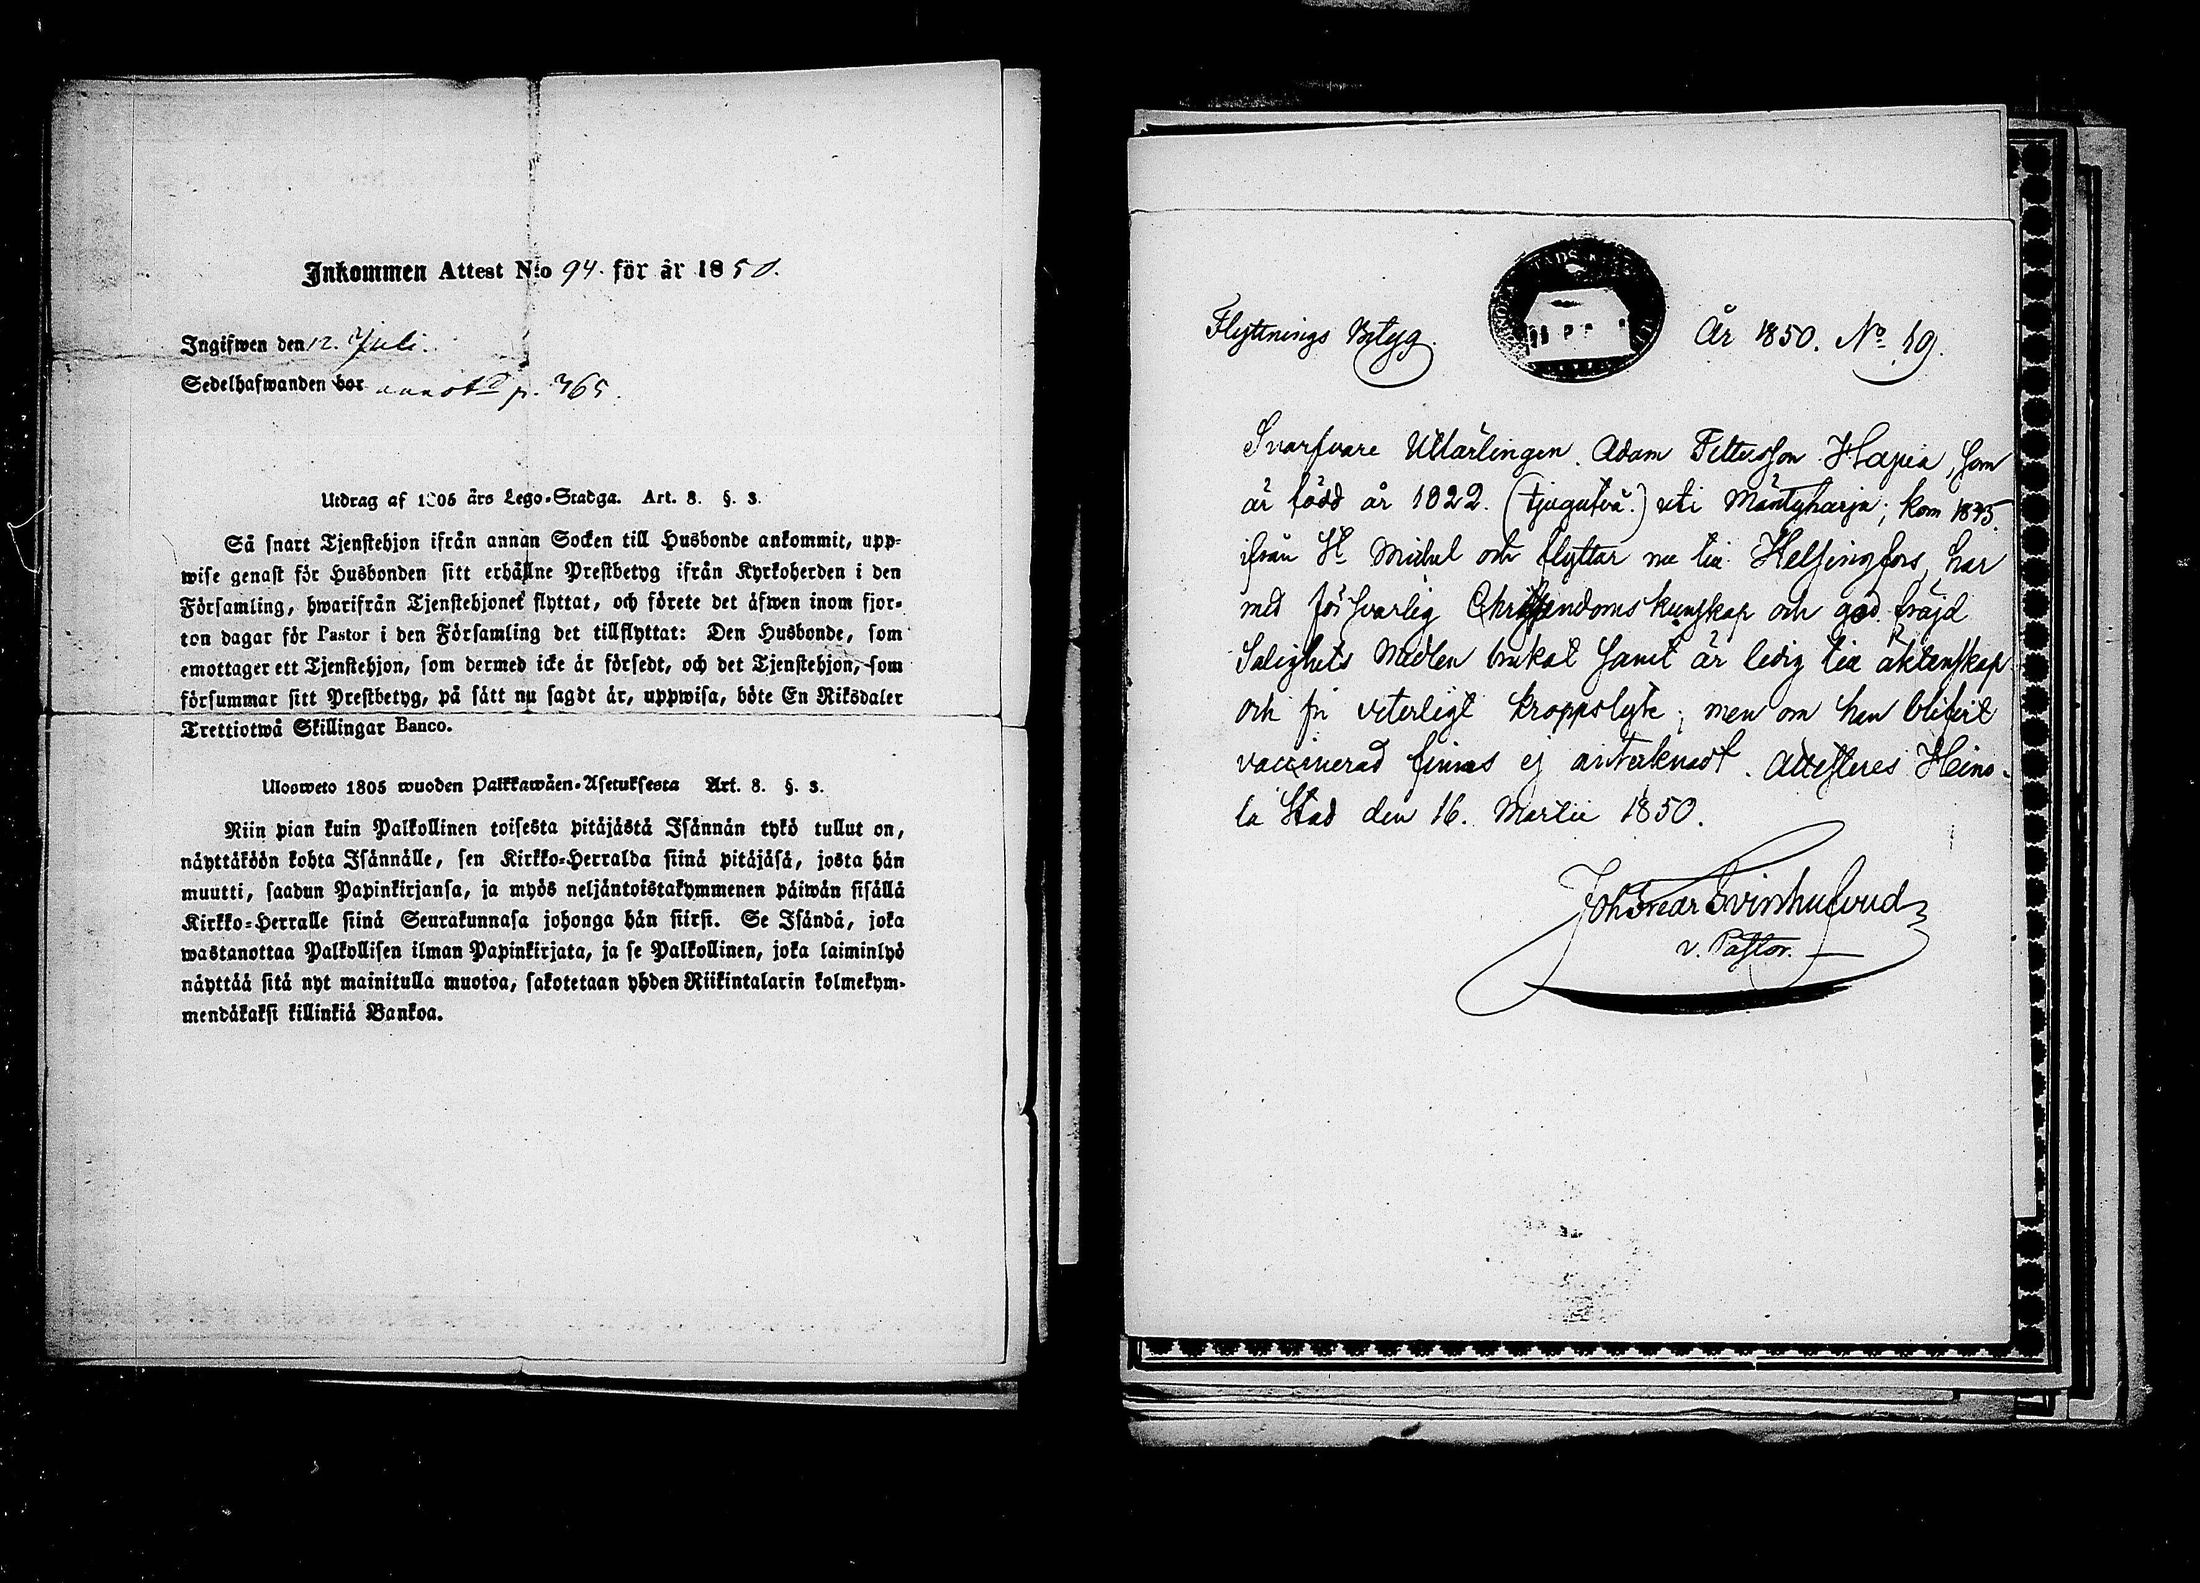 Inkommen Attest N:o 94. för år 1850.
Ingifwen den 12. Juli.
Sedelhafwanden bor p. 365.
Utdrag af 1805 års Lego-Stadga. Art. 8. §. 3.
Så snart Tjenstehjon ifrån annan Socken till Husbonde ankommit, upp-
wise genast för Husbonden sitt erhållne Prestbetyg ifrån Kyrkoherden i den
Församling, hwarifrån Tjenstehjonet flyttat, och förete det äfwen inom fjor-
ton dagar för Pastor i den Församling det tillflyttat: Den Husbonde, som
emottager ett Tjenstehjon, som dermed icke är försedt, och det Tjenstehjon, som
försummar sitt Prestbetyg, på sätt nu sagdt är, uppwisa, böte En Riksdaler
Trettiotwå Skillingar Banco.
Ulosweto 1805 wuoden Palkkawäen-Asetuksesta Art. 8. §. 3.
Niin pian kuin Palkollinen toisesta pitäjästä Isännän tykö tullut on,
näyttäköön kohta Isännälle, sen Kirkko-Herralda siinä pitäjäsä, josta hän
muutti, saadun Papinkirjansa, ja myös neljäntoistakymmenen päiwän sisällä
Kirkko-Herralle siinä Seurakunnasa johonga hän siirsi. Se Isändä, joka
wastanottaa Palkollisen ilman Papinkirjata, ja se Palkollinen, joka laiminlyö
näyttää sitä nyt mainitulla muotoa, sakotetaan yhden Riikintalarin kolmekym-
mendäkaksi killinkiä Bankoa.
Flyttnings Betyg. År 1850. No 19.
Svarfvare Utlärlingen Adam Pettersson Hapia, som
är född år 1822. (tjugutvå.) uti Mäntyharju; kom 1845.
ifrån St Michel och flyttar nu till Helsingfors, har
med försvarlig Christendoms kunskap och god frejd
Salighets Medlen brukat samt är ledig till äktenskap
och fri veterligt kroppslyte; men om han blifvit
vaccinerad finnes ej antecknadt. Attesteres Heino-
la Stad den 16. Martii 1850.
Joh Svinhufvud
v. Pastor.